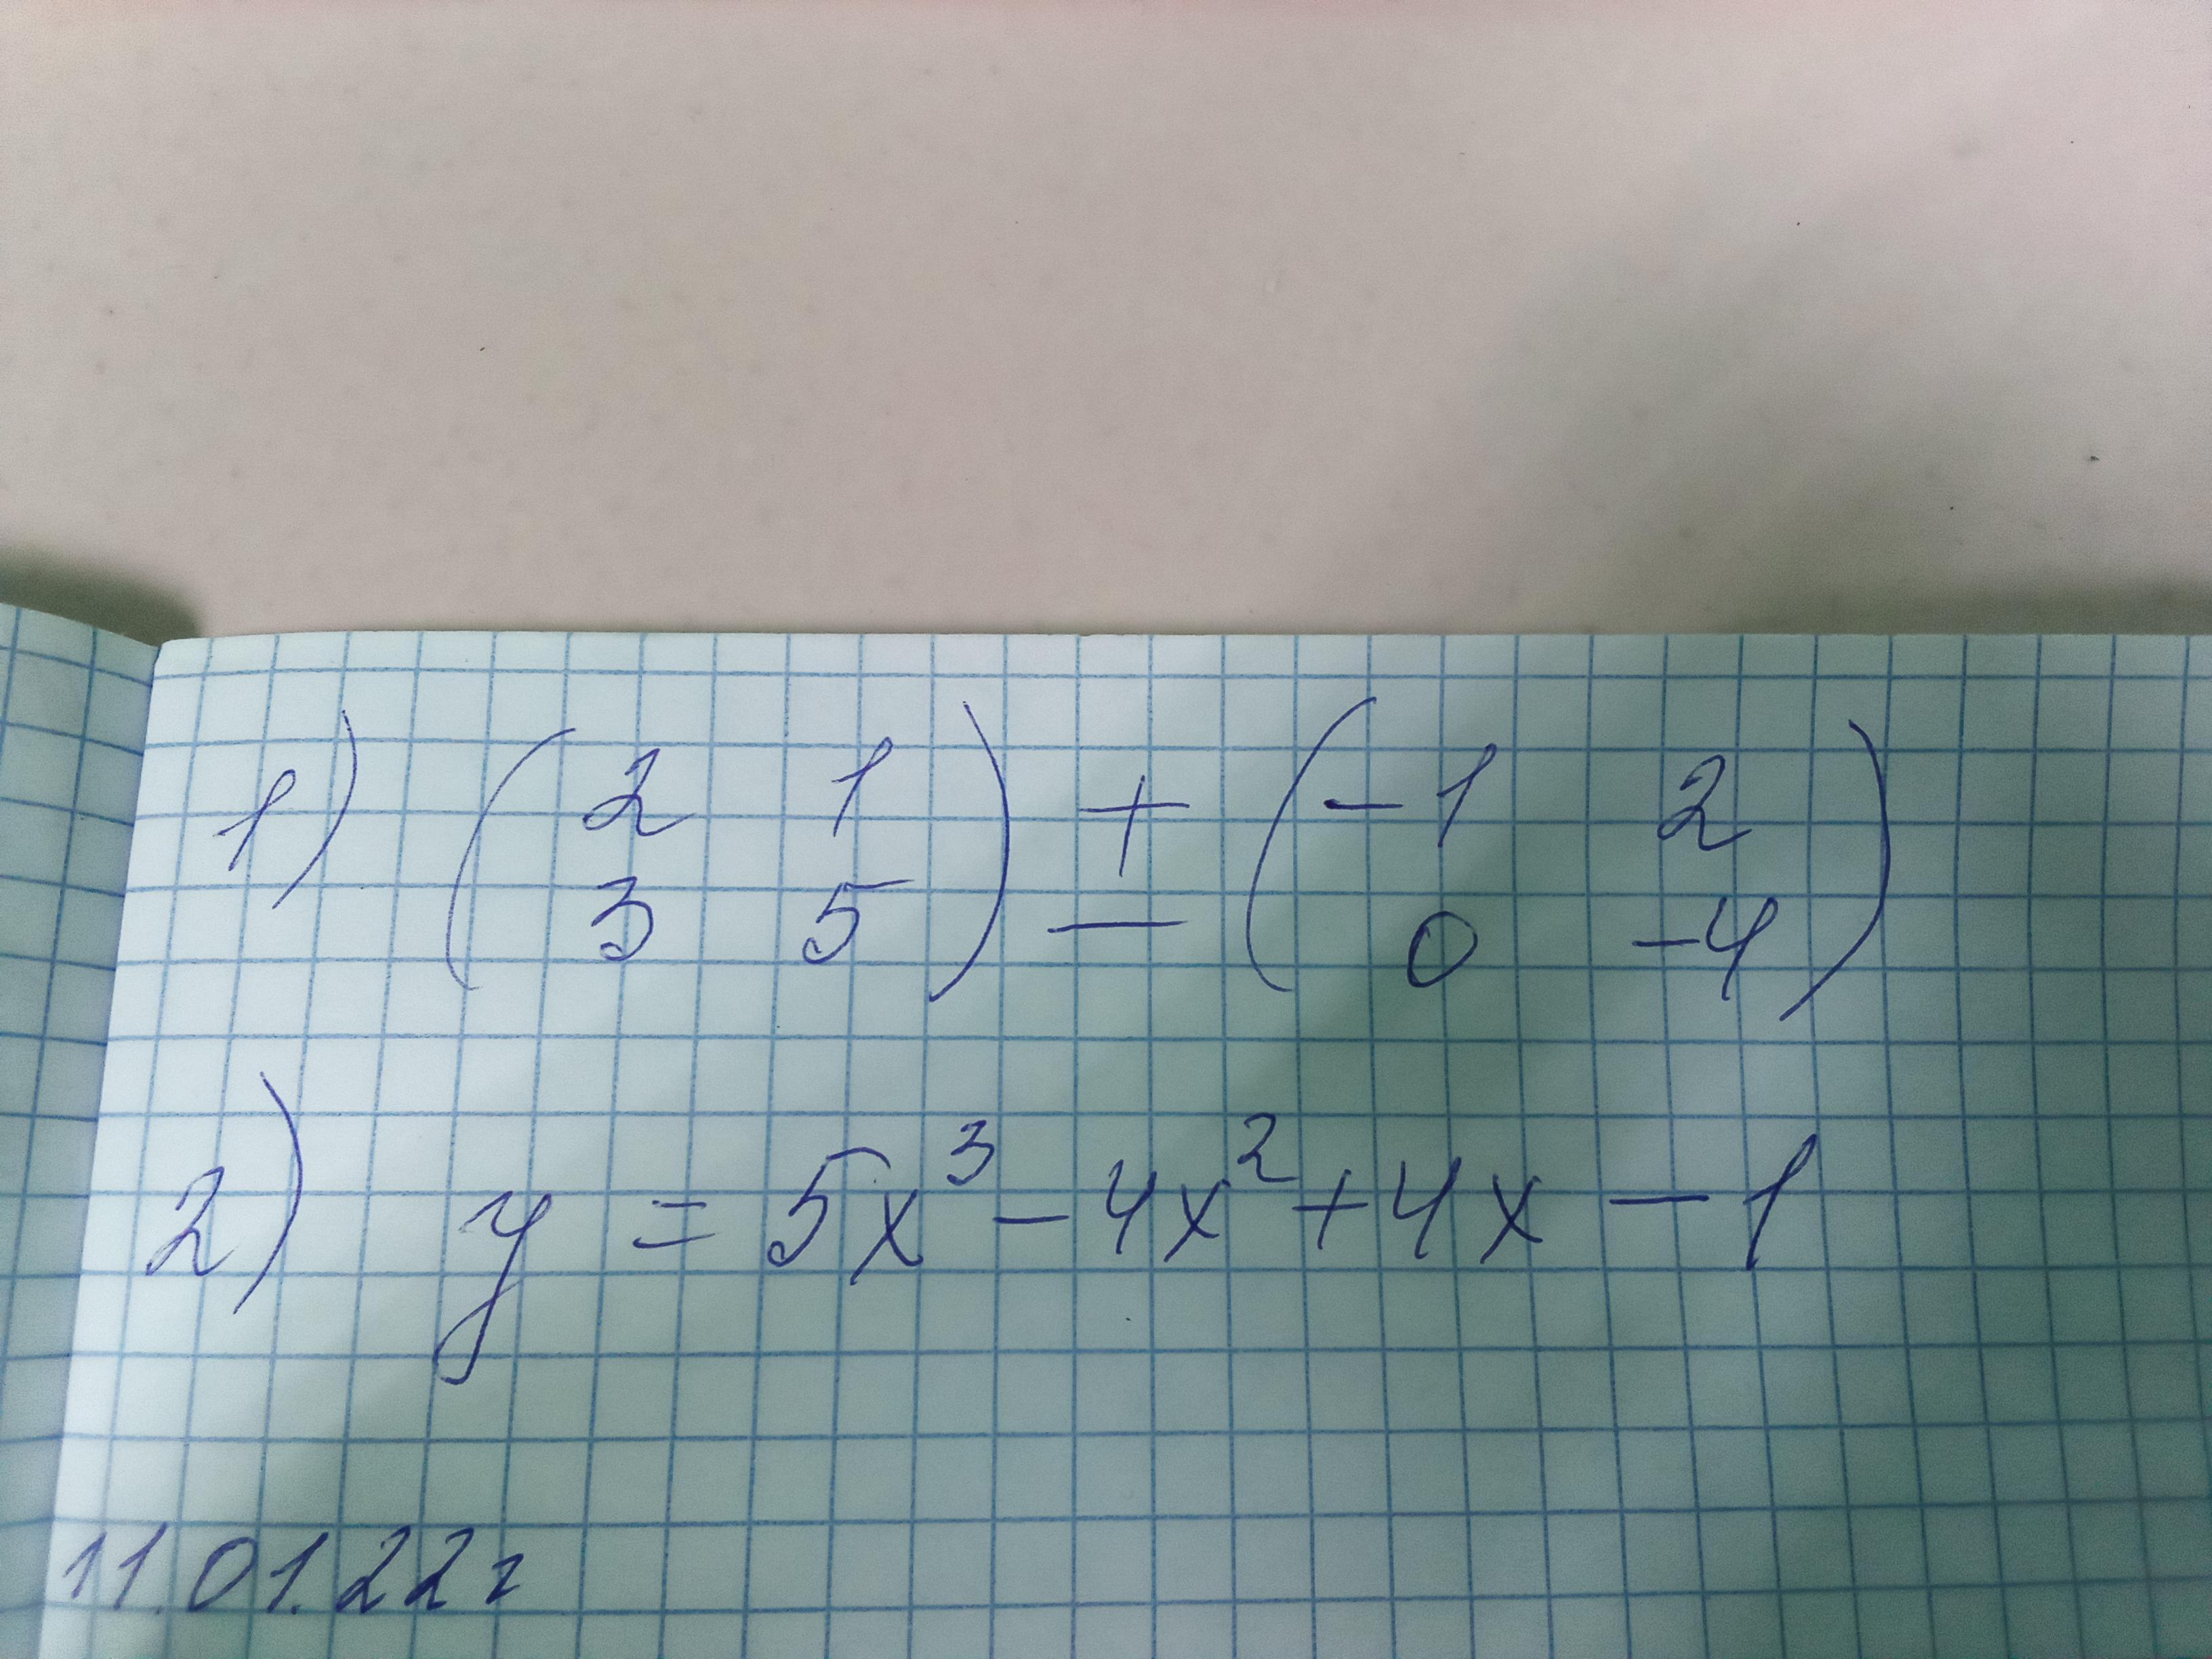 1) (2 1) + (-1 2)
(3 5) − (0 -4)
2) y = 5x³ - 4x² + 4x - 1
11.01.22г